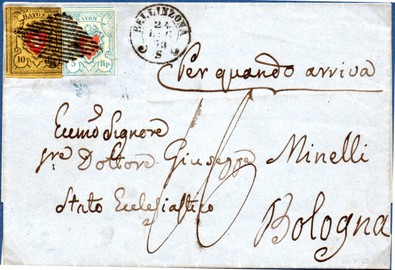 RAYON
10
RAYON
5 Rp
BELLINZONA
24
S
Per quando arriva
Ecc̃mo Signore
pre Dottore Giuseppe Minelli
Stato Ecclesiastico
Bologna